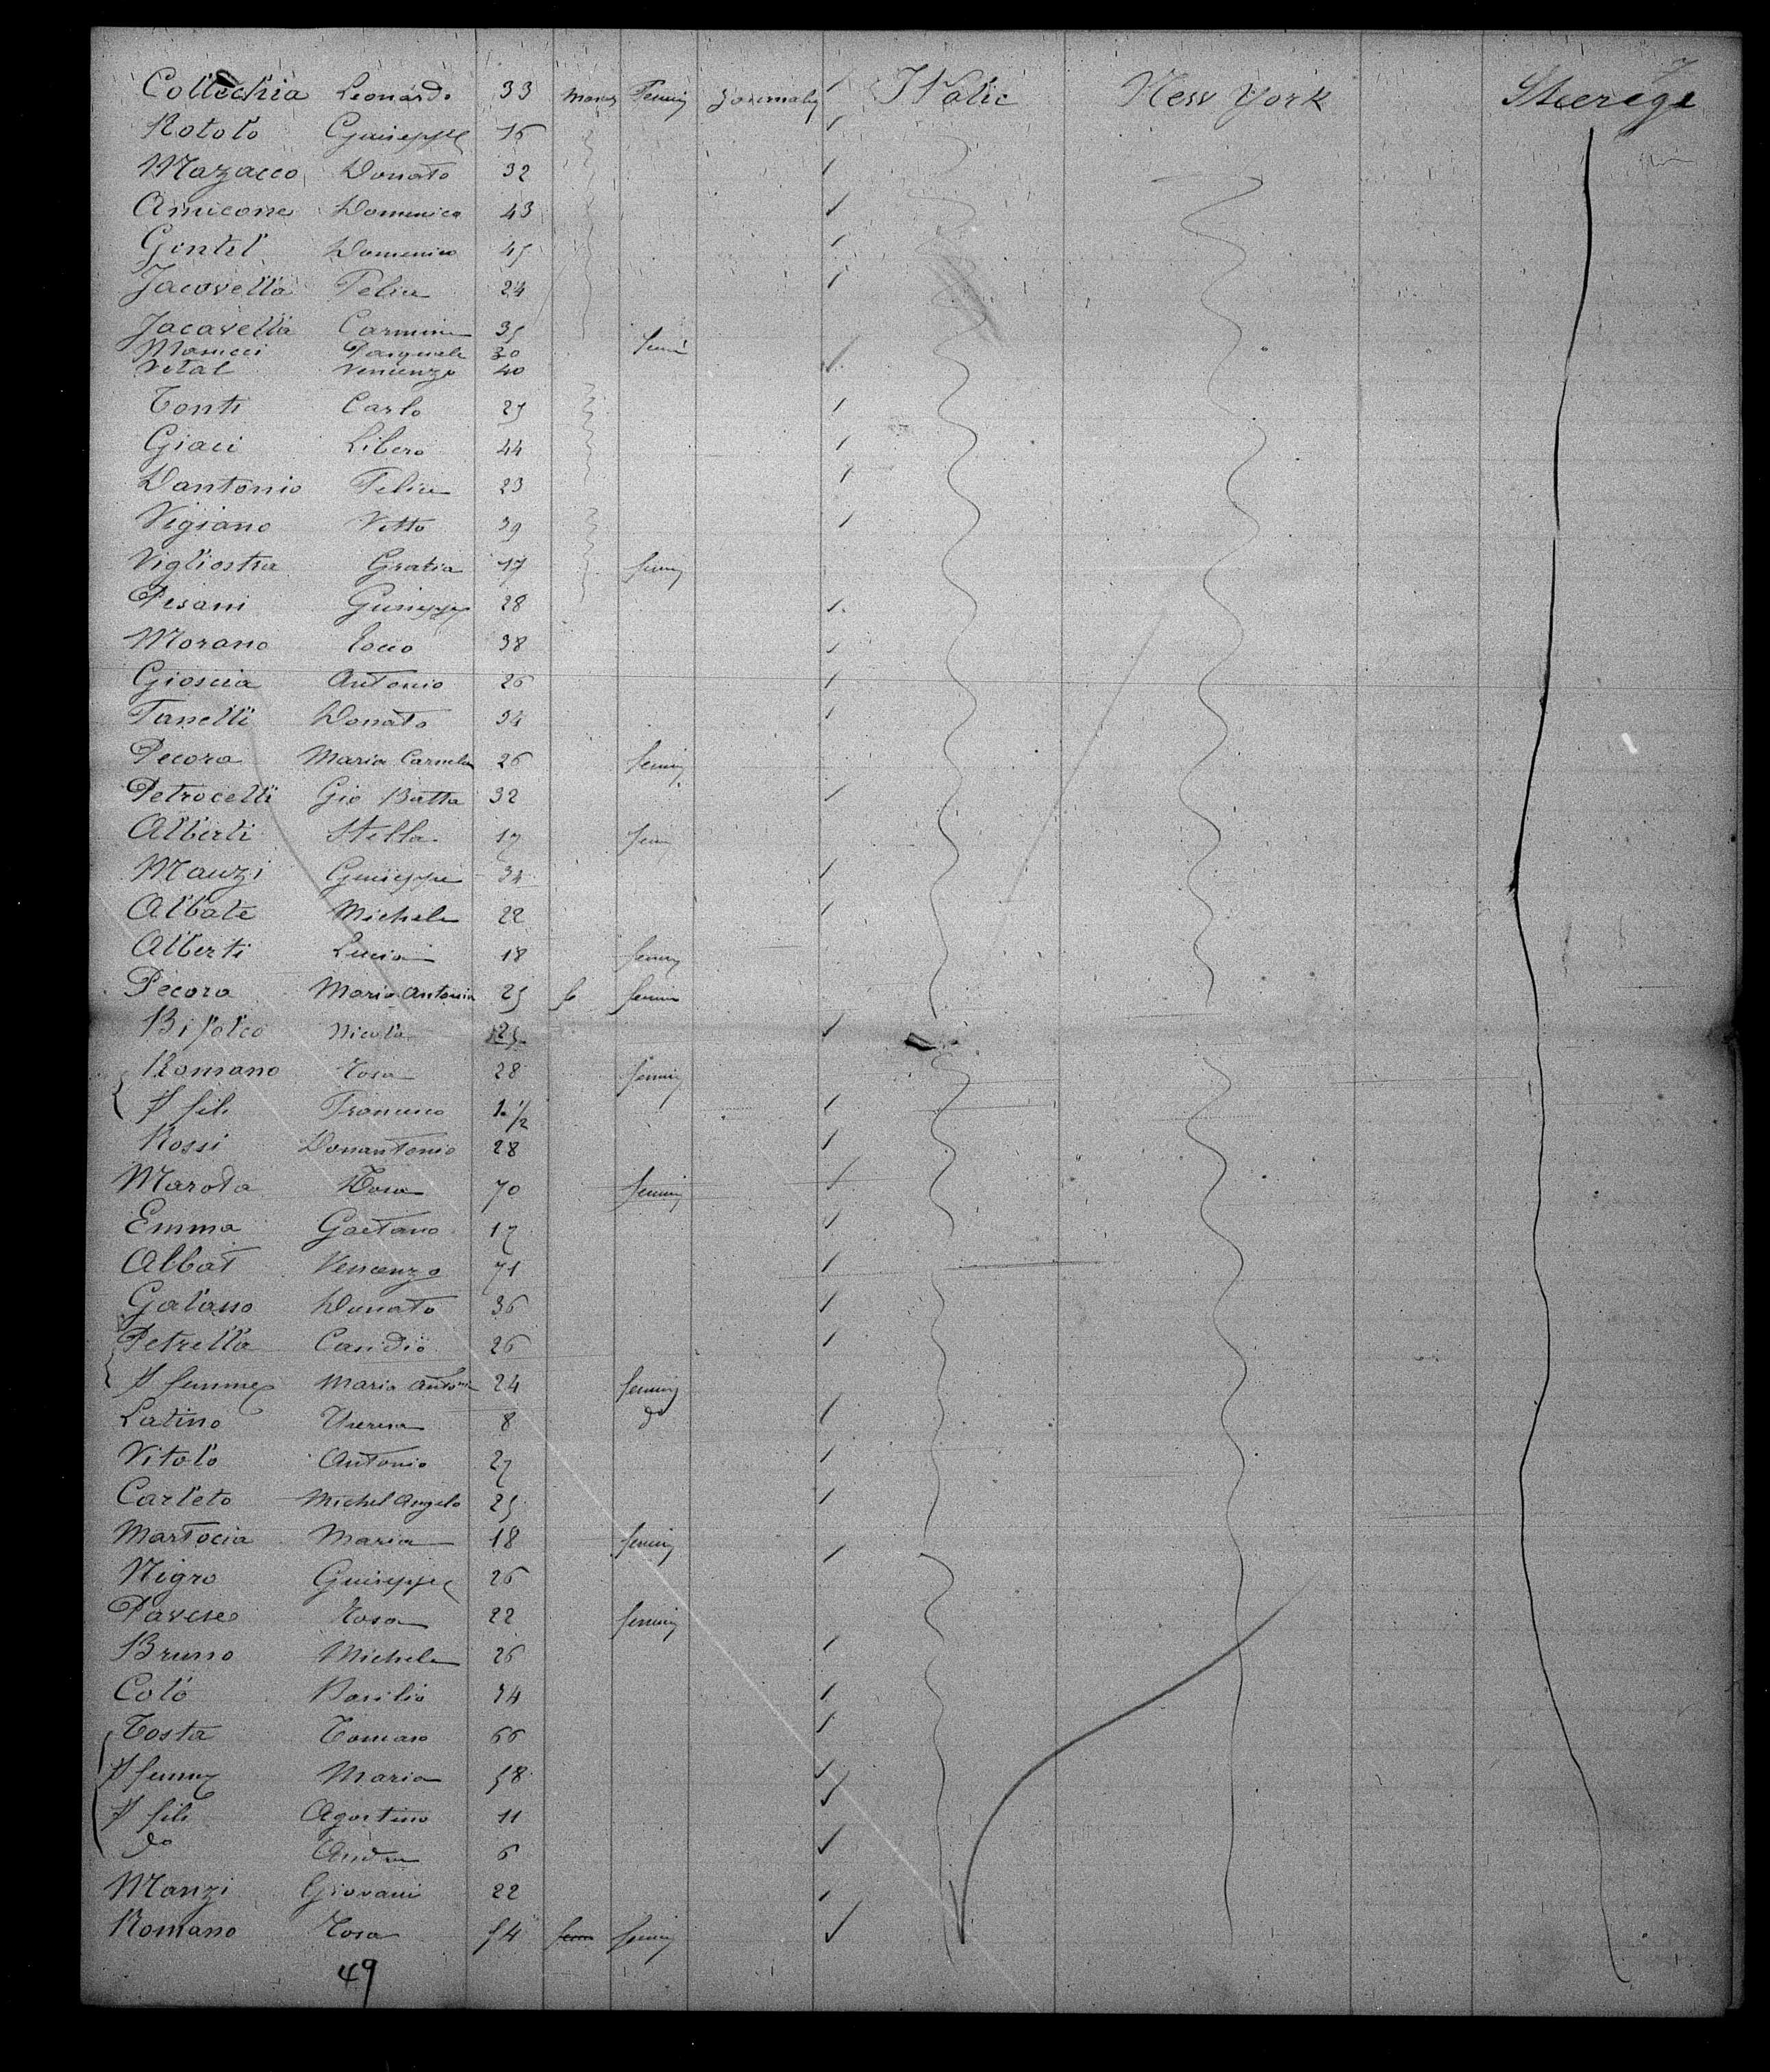 Collechia Leonardo 33 Femin Journaly Italie New York Steerege
Rotolo Guiseppe 16
Mazacco Donato 32
Amicone Domenico 43
Gentil Domenico 45
Jacovella Felice 24
Jacavella Carmine 35
Masucci Pasquale 30 femi
Vital Vincenzo 40
Tonti Carlo 25
Giaci Libero 44
Dantonio Felice 23
Vigiano Vitto 39
Vigliostra Gratia 17 femin
Pesani Guisepp 28
Morano Rocco 38
Gioscia Antonio 26
Fanelli Donato 34
Pecora Maria Carmela 26 femin
Petrocelli Gio Batta 32
Alberti Stella 17 femin
Mauzi Guiseppe 34
Albate Michele 22
Alberti Lucia 18 femin
Pecora Maria Antonia 25 fe femin
Bifolco Nicola 25
Romano Rosa 28 femin
S fils Francisco 1 1/2
Rossi Donantonio 28
Marota Rosa 70 femin
Emma Gaetano 17
Albat Vencenzo 71
Galasso Donato 36
Petrella Candio 26
S femme Maria Antonia 24 femin
Latino Theresa 8 do
Vitolo Antonio 27
Carleto Michel Angelo 25
Martocia Maria 18 femin
Nigro Guiseppe 26
Pavese Rosa 22 femin
Bruno Michele 26
Colo Basilio 34
Tosta Tomaso 66
S femme Maria 58
S fils Agostino 11
do Andre 6
Manzi Giovani 22
Romano Rosa 54 fem femin
49